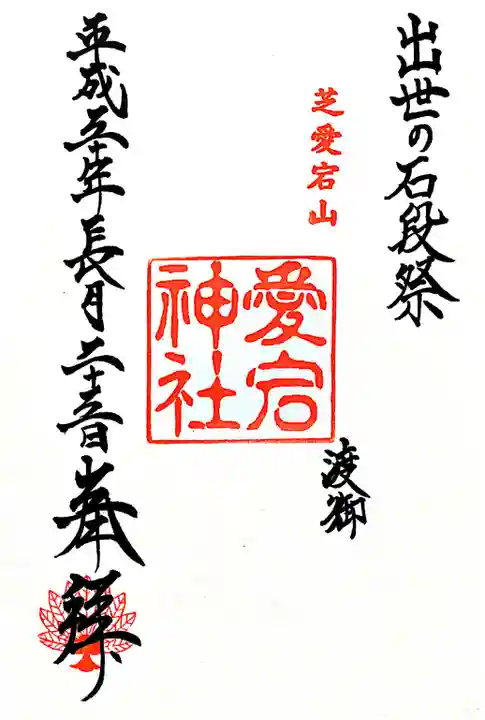 出世の石段祭
芝愛宕山
愛宕
神社
渡御
平成三十年長月二十三日奉拝